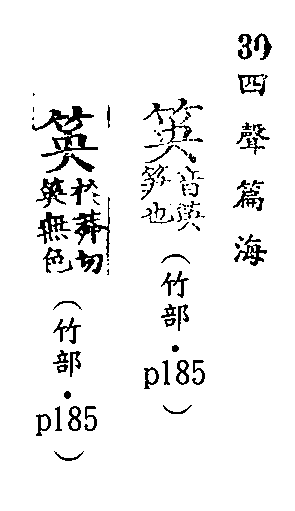 30 四聲篇海
䇦 音英 也 (竹部・p185)
䇦 於莽切 英無色 (竹部・p185)